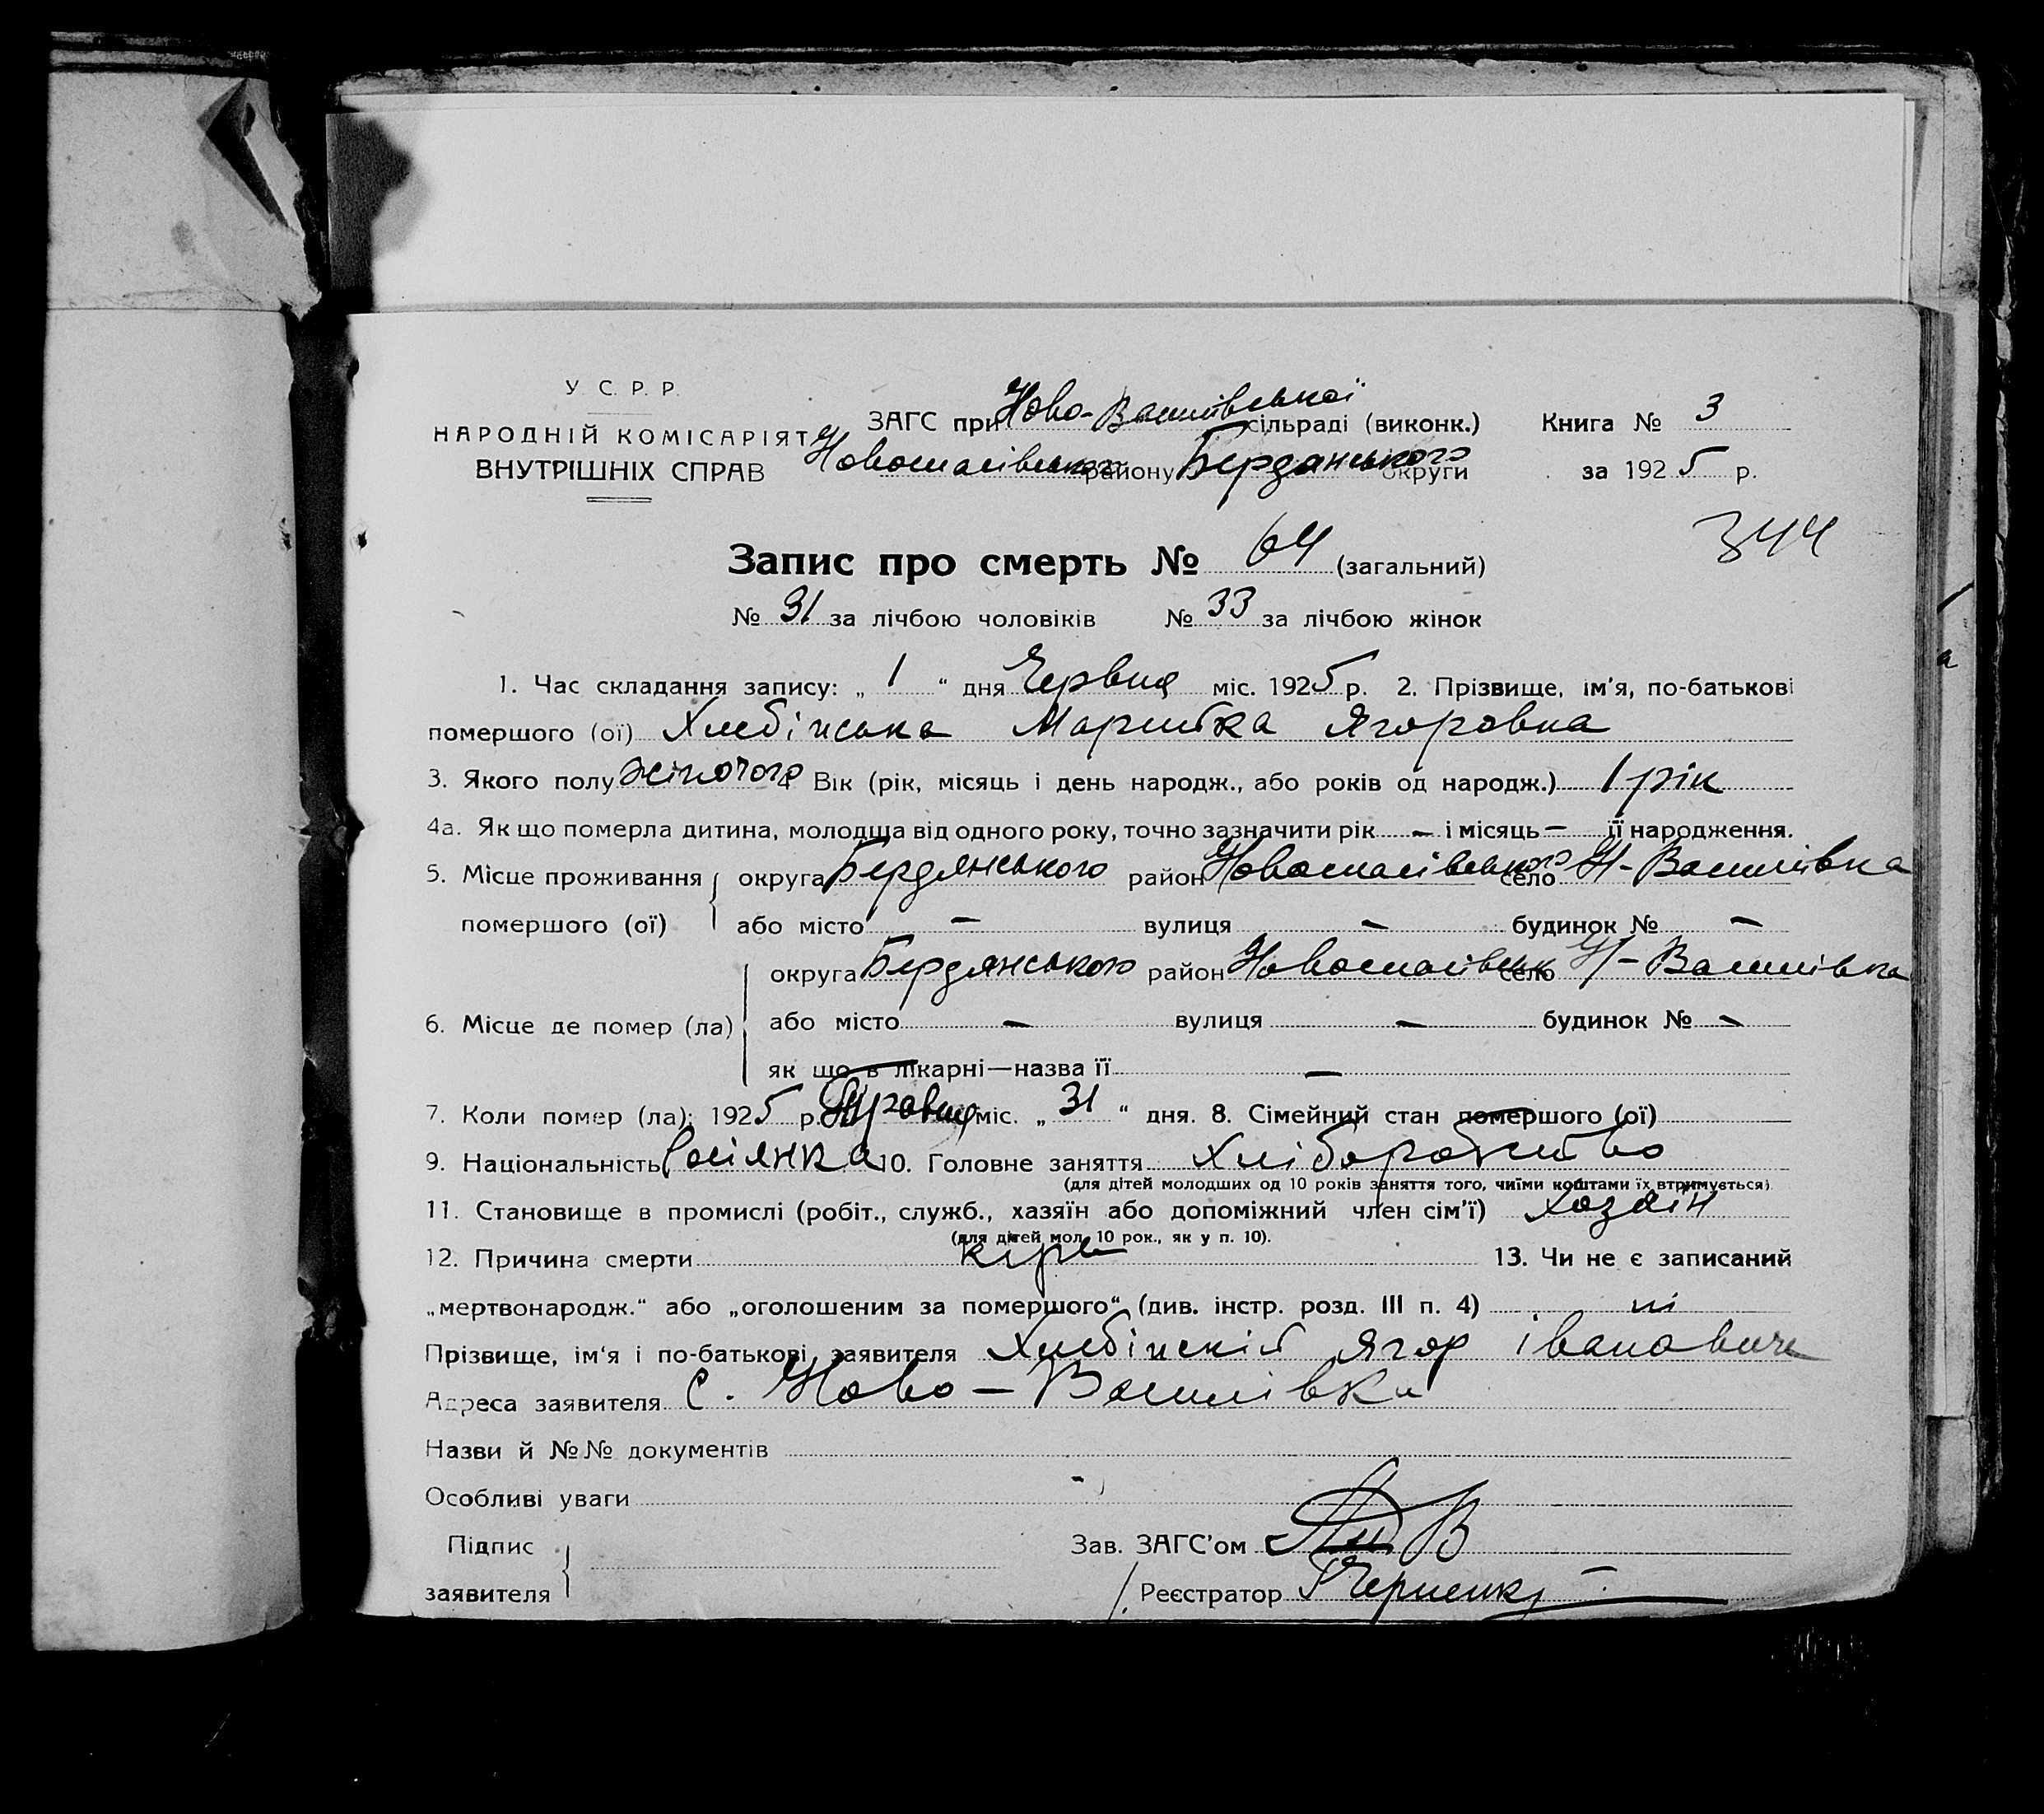 У. С. Р. Р.
НАРОДНІЙ КОМІСАРІЯТ
ВНУТРІШНІХ СПРАВ
ЗАГС при Ново-Василівської сільраді (виконк.)
Новоспасівського району Бердянського округи
Книга № 3
за 1925 р.
344
Запис про смерть № 64 (загальний)
№ 31 за лічбою чоловіків № 33 за лічбою жінок
1. Час складання запису: „ 1 “ дня Червня міс. 1925 р. 2. Прізвище, ім'я, по-батькові
помершого (ої) Хлебінська Ягоровна
3. Якого полу жіночого 4 Вік (рік, місяць і день народж., або років од народж.) 1 рік
4а. Як що померла дитина, молодща від одного року, точно зазначити рік — і місяць — її народження.
5. Місце проживання округа Бердянського район Новоспасівського село Н-Василівка
помершого (ої) або місто — вулиця — будинок № —
округа Бердянського район Новоспасівськ село Н-Василівка
6. Місце де помер (ла) або місто — вулиця — будинок № —
як що в лікарні—назва її —
7. Коли помер (ла): 1925 р. Травня міс. „ 31 “ дня. 8. Сімейний стан помершого (ої)
9. Національність Росіянка 10. Головне заняття Хліборобство
(для дітей молодших од 10 років заняття того, чиїми коштами їх втримується).
11. Становище в промислі (робіт., служб., хазяїн або допоміжний член сім'ї) Хозяін
(для дітей мол. 10 рок., як у п. 10).
12. Причина смерти кір 13. Чи не є записаний
„мертвонародж.“ або „оголошеним за помершого“ (див. інстр. розд. III п. 4) ні
Прізвище, ім'я і по-батькові заявителя Хлебінскій Ягор Івановичь
Адреса заявителя с. Ново-Василівка
Назви й №№ документів
Особливі уваги
Підпис
заявителя
Зав. ЗАГС'ом
Реєстратор